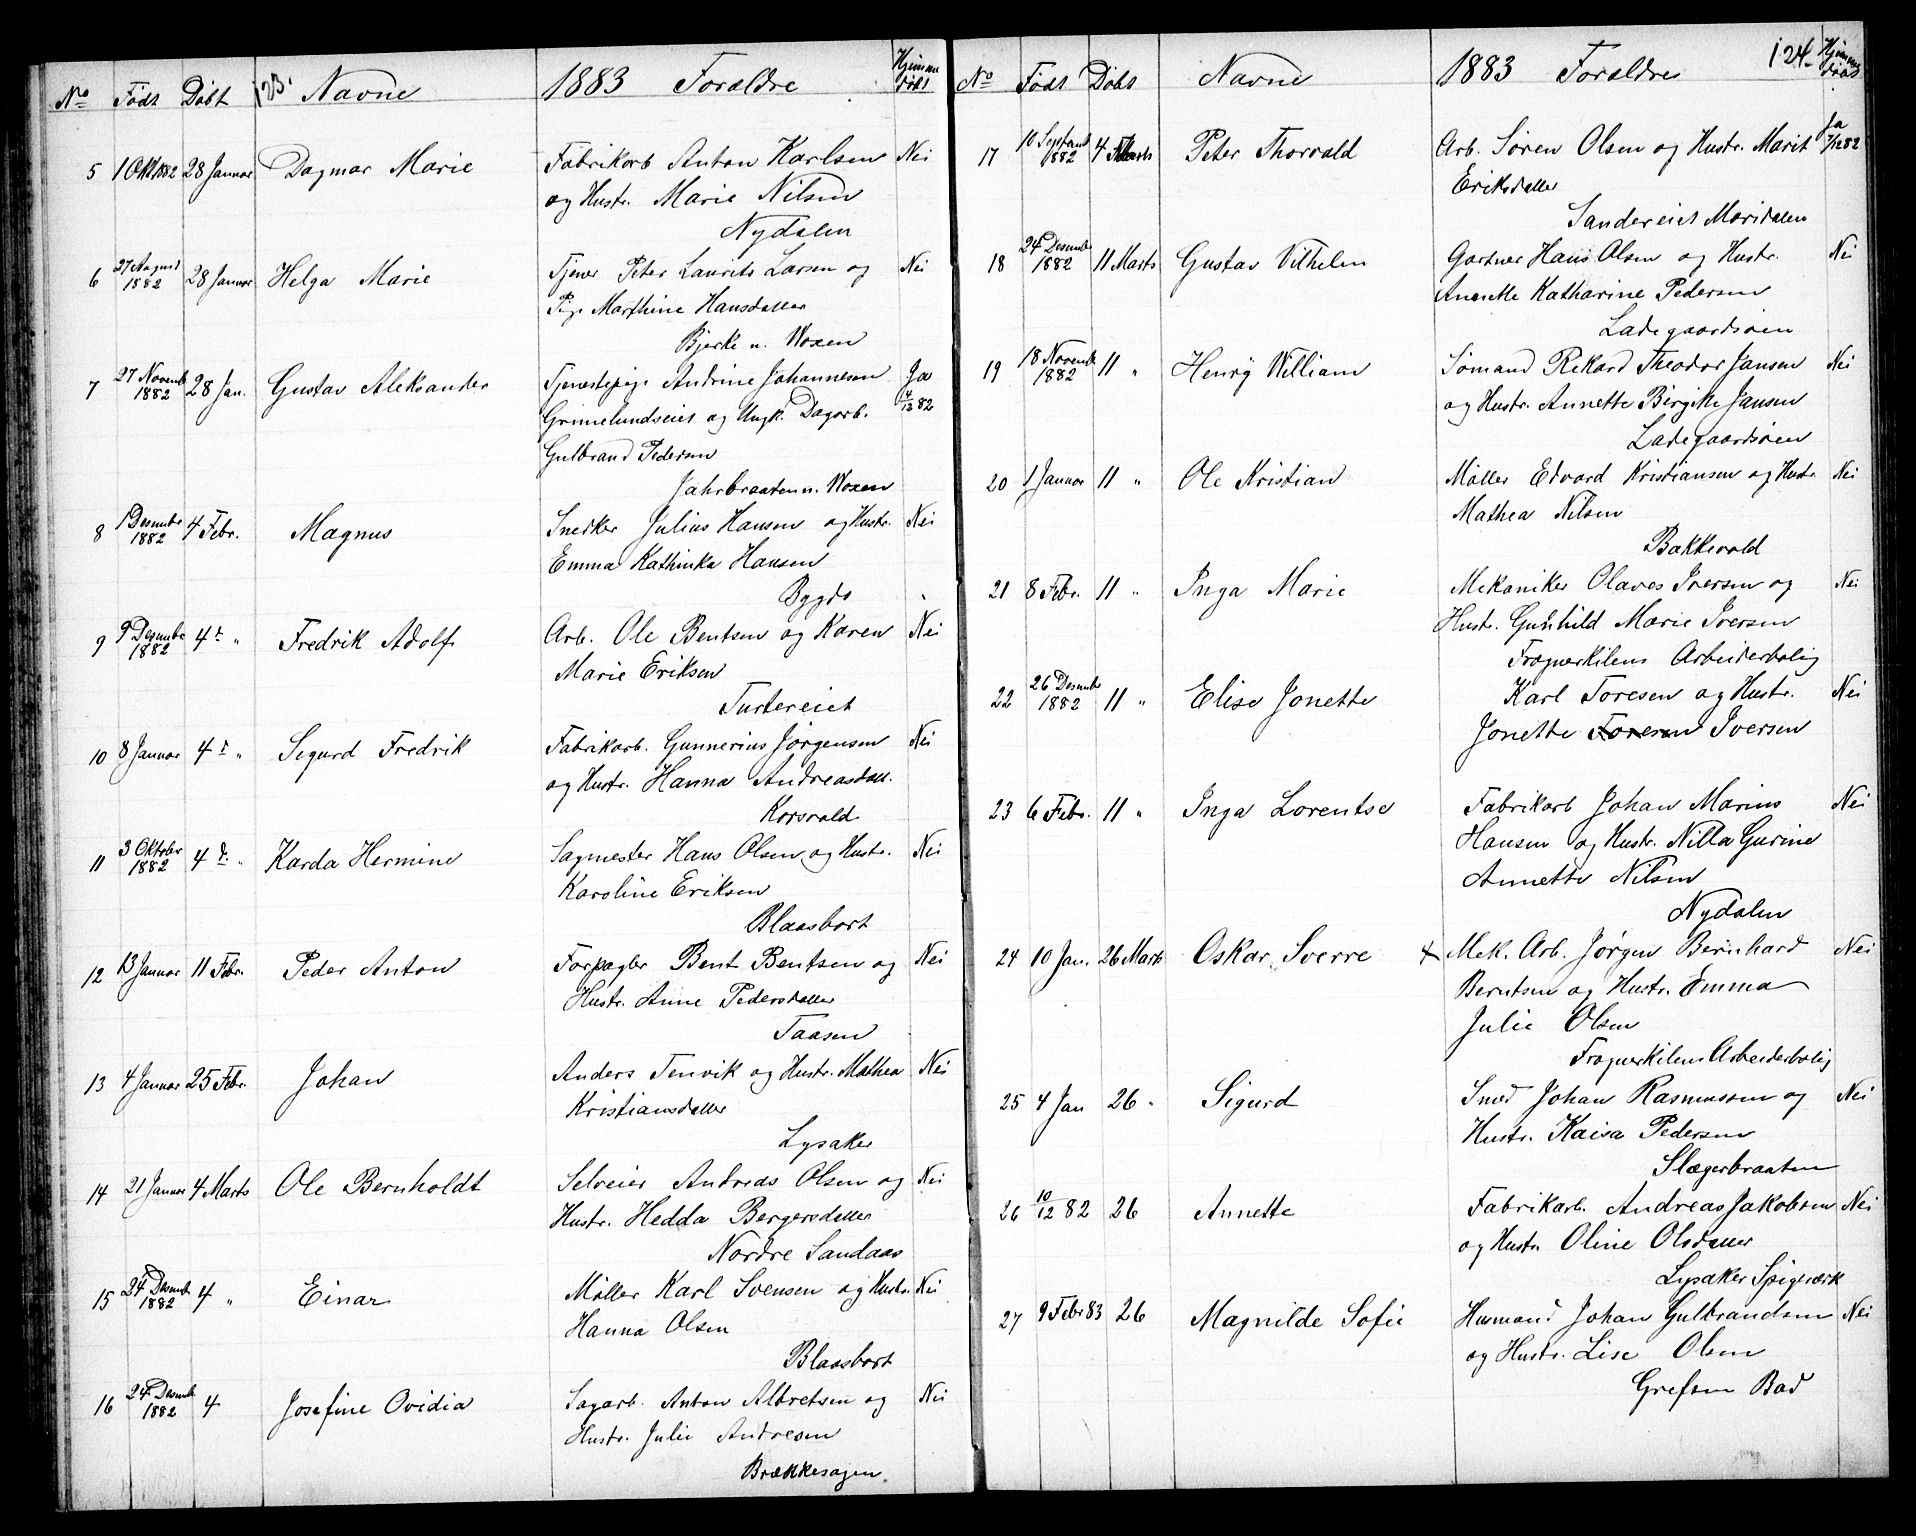 123.
No Født Døbt Navne 1883 Forældre Hjemmedøbt
5 1 Okt 1882 28 Januar Dagmar Marie Fabrikarb Anton Karlsen Nei
og Hustr. Marie Nilsen
Nydalen
6 27 August 1882 28 Januar Helga Marie Tjener Peter Laurits Larsen og Nei
Pige Marthine Hansdatter
Bjerke u. Voxen
7 27 Novemb 1882 28 Jan. Gustav Aleksander Tjenestepige Andrine Johannesen Ja
Grimelundseiet og Ungk. Dagarb. 4/12 82
Gulbrand Pedersen
Jahrbraaten u. Voxen
8 1 Desember 1882 4 Febr. Magnus Snedker Julius Hansen og Hustr. Nei
Emma Kathinka Hansen
Bygdø
9 9 Desember 1882 4 " Fredrik Adolf Arb. Ole Bentsen og Karen Nei
Marie Eriksen
Turtereiet
10 8 Januar 4 " Sigurd Fredrik Fabrikarb. Gunnerius Jørgensen Nei
og Hustr. Hanna Andreasdatt.
Korsvold
11 3 Oktober 1882 4 " Karda Hermine Sagmester Hans Olsen og Hustr. Nei
Karoline Eriksen
Blaasbort
12 13 Januar 11 Febr. Peder Anton Forpagter Bent Bentsen og Nei
Hustr. Anne Pedersdatter
Taasen
13 4 Januar 25 Febr. Johan Anders Tenvik og Hustr. Mathea Nei
Kristiansdatter
Lysaker
14 21 Januar 4 Marts Ole Bernholdt Selveier Andreas Olsen og Nei
Hustr. Hedda Bergersdatter
Nordre Sandaas
15 24 Desemb 1882 4 " Einar Møller Karl Svensen og Hustr. Nei
Hanna Olsen
Blaasbort
16 24 Desemb 1882 4 Josefine Ovidia Sagarb. Anton Albretsen og Nei
Hustr. Julie Andresen
Brækkesagen
124.
No Født Døbt Navne 1883 Forældre Hjemmedøbt
17 10 Septemb 1882 4 Marts Peter Thorvald Arb. Søren Olsen og Hustr. Marit Ja
Eriksdatter
Sandereiet Maridalen
18 24 Desember 1882 11 Marts Gustav Vilhelm Gartner Hans Olsen og Hustr. Nei
Annette Katharine Pedersen
Ladegaardsøen
19 18 Novemb 1882 11 " Henrÿ William Sømand Rekard Theodor Jansen Nei
og Hustr. Annette Birgitte Jansen
Ladegaardsøen
20 1 Januar 11 " Ole Kristian Møller Edvard Kristiansen og Hustr. Nei
Mathea Nilsen
Bakkevold
21 8 Febr. 11 " Inga Marie Mekaniker Olaves Iversen og Nei
Hustr. Gunhild Marie Iversen
Frognerkilens Arbeiderbolig
22 26 Desember 1882 11 " Elise Jonette Karl Toresen og Hustr. Nei
Jonette Toresen Iversen
23 6 Febr. 11 " Inga Lorentse Fabrikarb Johan Marius Nei
Hansen og Hustr. Nilla Gurine
Annette Nilsen
Nydalen
24 10 Jan. 26 Marts Oskar Sverre + Mek. Arb. Jørgen Bernhard Nei
Berntsen og Hustr. Emma
Julie Olsen
Frognerkilens Arbeiderbolig
25 4 Jan 26 " Sigurd Smed Johan Rasmussen og Nei
Hustr. Kaisa Pedersen
Slagerbraaten
26 10/12 82 26 Annette Fabrikarb. Andreas Jakobsen Nei
og Hustr. Oline Olsdatter
Lysaker Spigerværk
27 9 Febr 83 26 Magnilde Sofie Husmand Johan Gulbrandsen Nei
og Hustr. Lise Olsen
Grefsen Bad